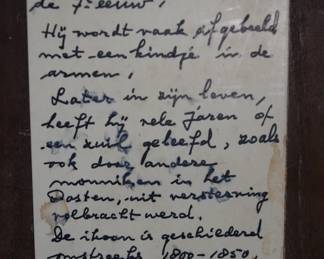 de 7e eeuw,
Hij wordt vaak afgebeeld
met een kindje in de
armen,
Later in zijn leven,
heeft hij vele jaren op
een zuil geleefd, zoals
ook door andere
monniken in het
Oosten, uit versterving
volbracht werd.
De ikoon is geschilderd
omstreeks 1800-1850,